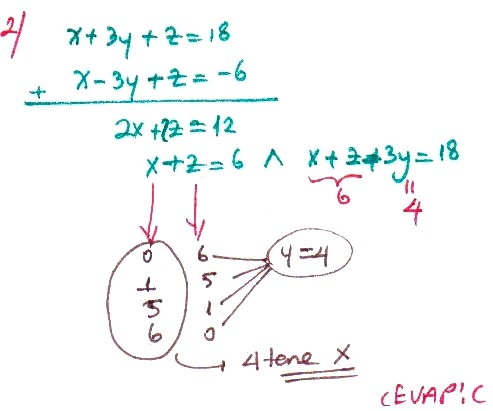 2)
x+3y+z=18
+ x-3y+z=-6
2x+2z=12
x+z=6 ∧ x+z+3y=18
6 4
0 6 y=4
1 5
5 1
6 0
4 tane x
CEVAP: C